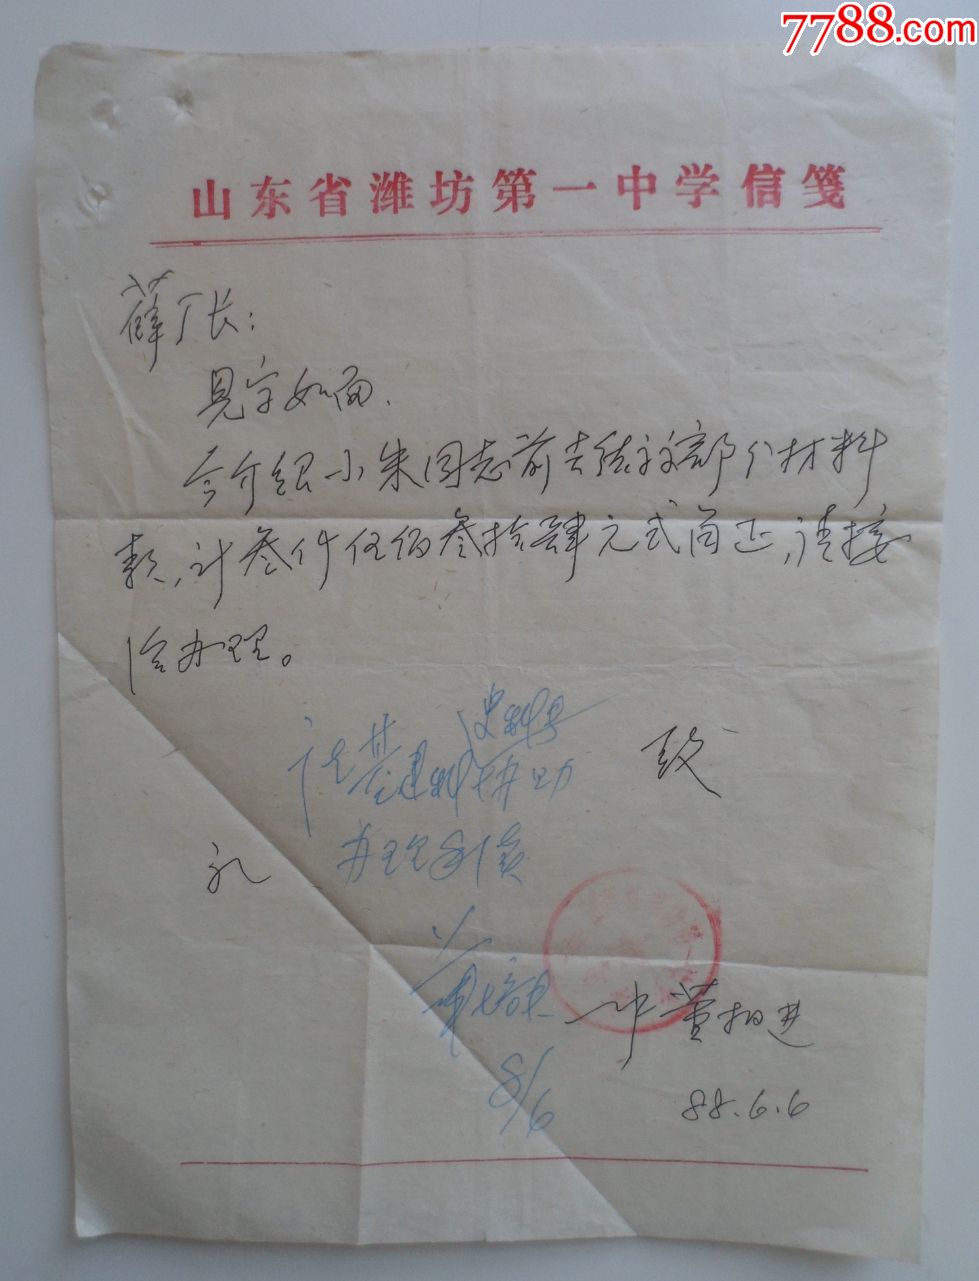 7788.com
山东省潍坊第一中学信笺
薛厂长：
见字如面.
今介绍小朱同志前去结交部分材料
款,计叁仟伍佰叁拾肆元弍角正,请接
洽办理。
致
请基建科
协助
办理
礼
一中 董
8/6
88.6.6